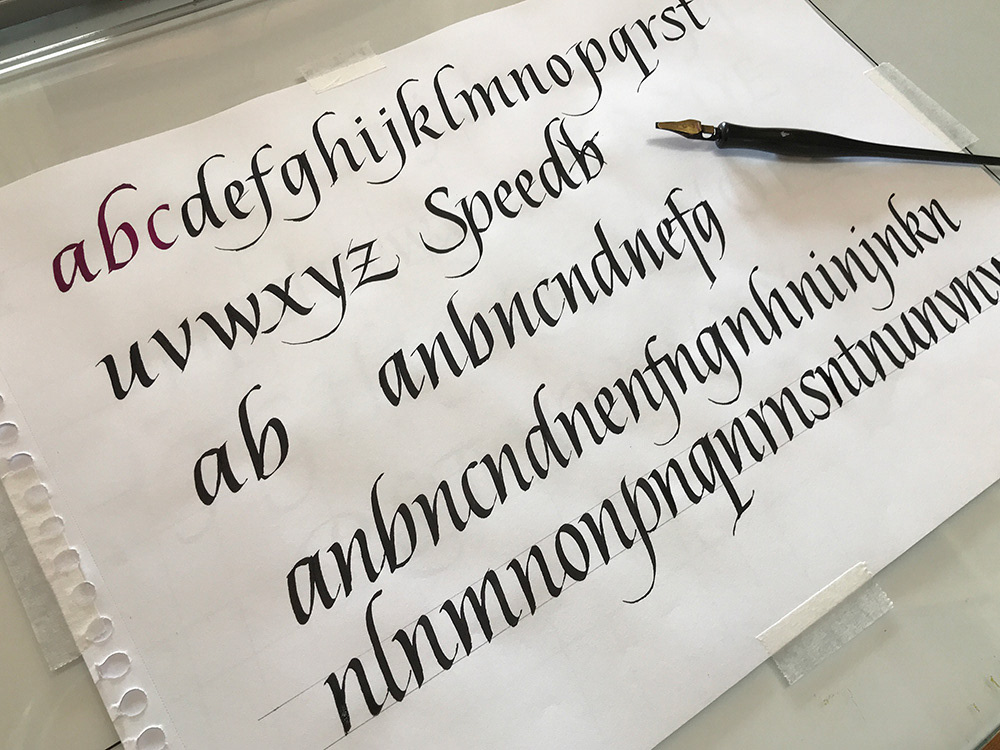 abcdefghijklmnopqrst
uvwxyz Speedb
ab anbncndnefg
anbncndnenfngnhninjnkn
nlnmnonpnqnrnsntnunvny